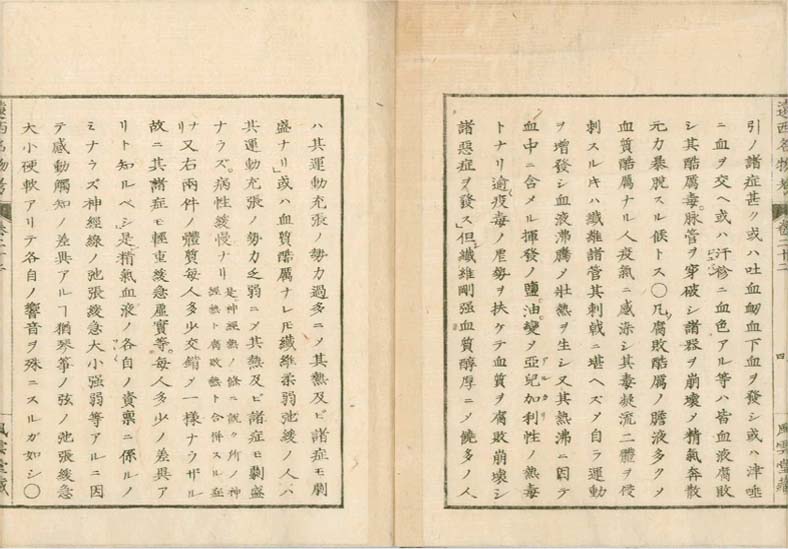 引ノ諸症甚ク或ハ吐血衂血下血ヲ發シ或ハ津唾
ニ血ヲ交ヘ或ハ汗疹ニ血色アル等ハ皆血液腐敗
シ其酷厲毒。脉管ヲ穿破シ諸器ヲ崩壞〆精氣奔散
元力暴脱スル候トス〇凡腐敗酷厲ノ膽液多ク〆
血質酷厲ナル人疫氣ニ感染シ其毒凝流二體ヲ侵
刺スル𪜈ハ纖維諸管其刺戟ニ堪ヘズ〆自ラ運動
ヲ增發シ血液沸騰〆壯熱ヲ生シ又其熱沸ニ因テ
血中ニ含メル揮發ノ鹽。油。變〆亞兒加利性ノ熱毒
トナリ逾疫毒ノ虐勢ヲ扶ケテ血質ヲ腐敗崩壞シ
諸惡症ヲ發ス」但纖維剛强血質醇厚ニ〆饒多ノ人
ハ其運動充張ノ勢力過多ニ〆其熱及ビ諸症モ劇
盛ナリ」或ハ血質酷厲ナレ𪜈纖維柔弱弛緩ノ人ハ
其運動充張ノ勢力乏弱ニ〆其熱及ビ諸症モ劇盛
ナラズ。病性緩慢ナリ
是神經熱ノ條ニ説ク所ノ神
經熱ト腐敗熱ト合併スル症
ナリ
又右兩件ノ體質每人多少交錯〆一樣ナラザル
故ニ其諸症モ輕重緩急虛實等。每人多少ノ差異ア
リト知ルベシ是精氣血液ノ各自ノ資禀ニ係ルノ
ミナラズ神經線ノ弛張緩急大小强弱等アルニ因
テ感動觸知ノ差異アルヿ猶琴箏ノ弦ノ弛張緩急
大小硬軟アリテ各自ノ響音ヲ殊ニスルガ如シ〇
遠西名物考
卷二十二
四
風雲堂藏